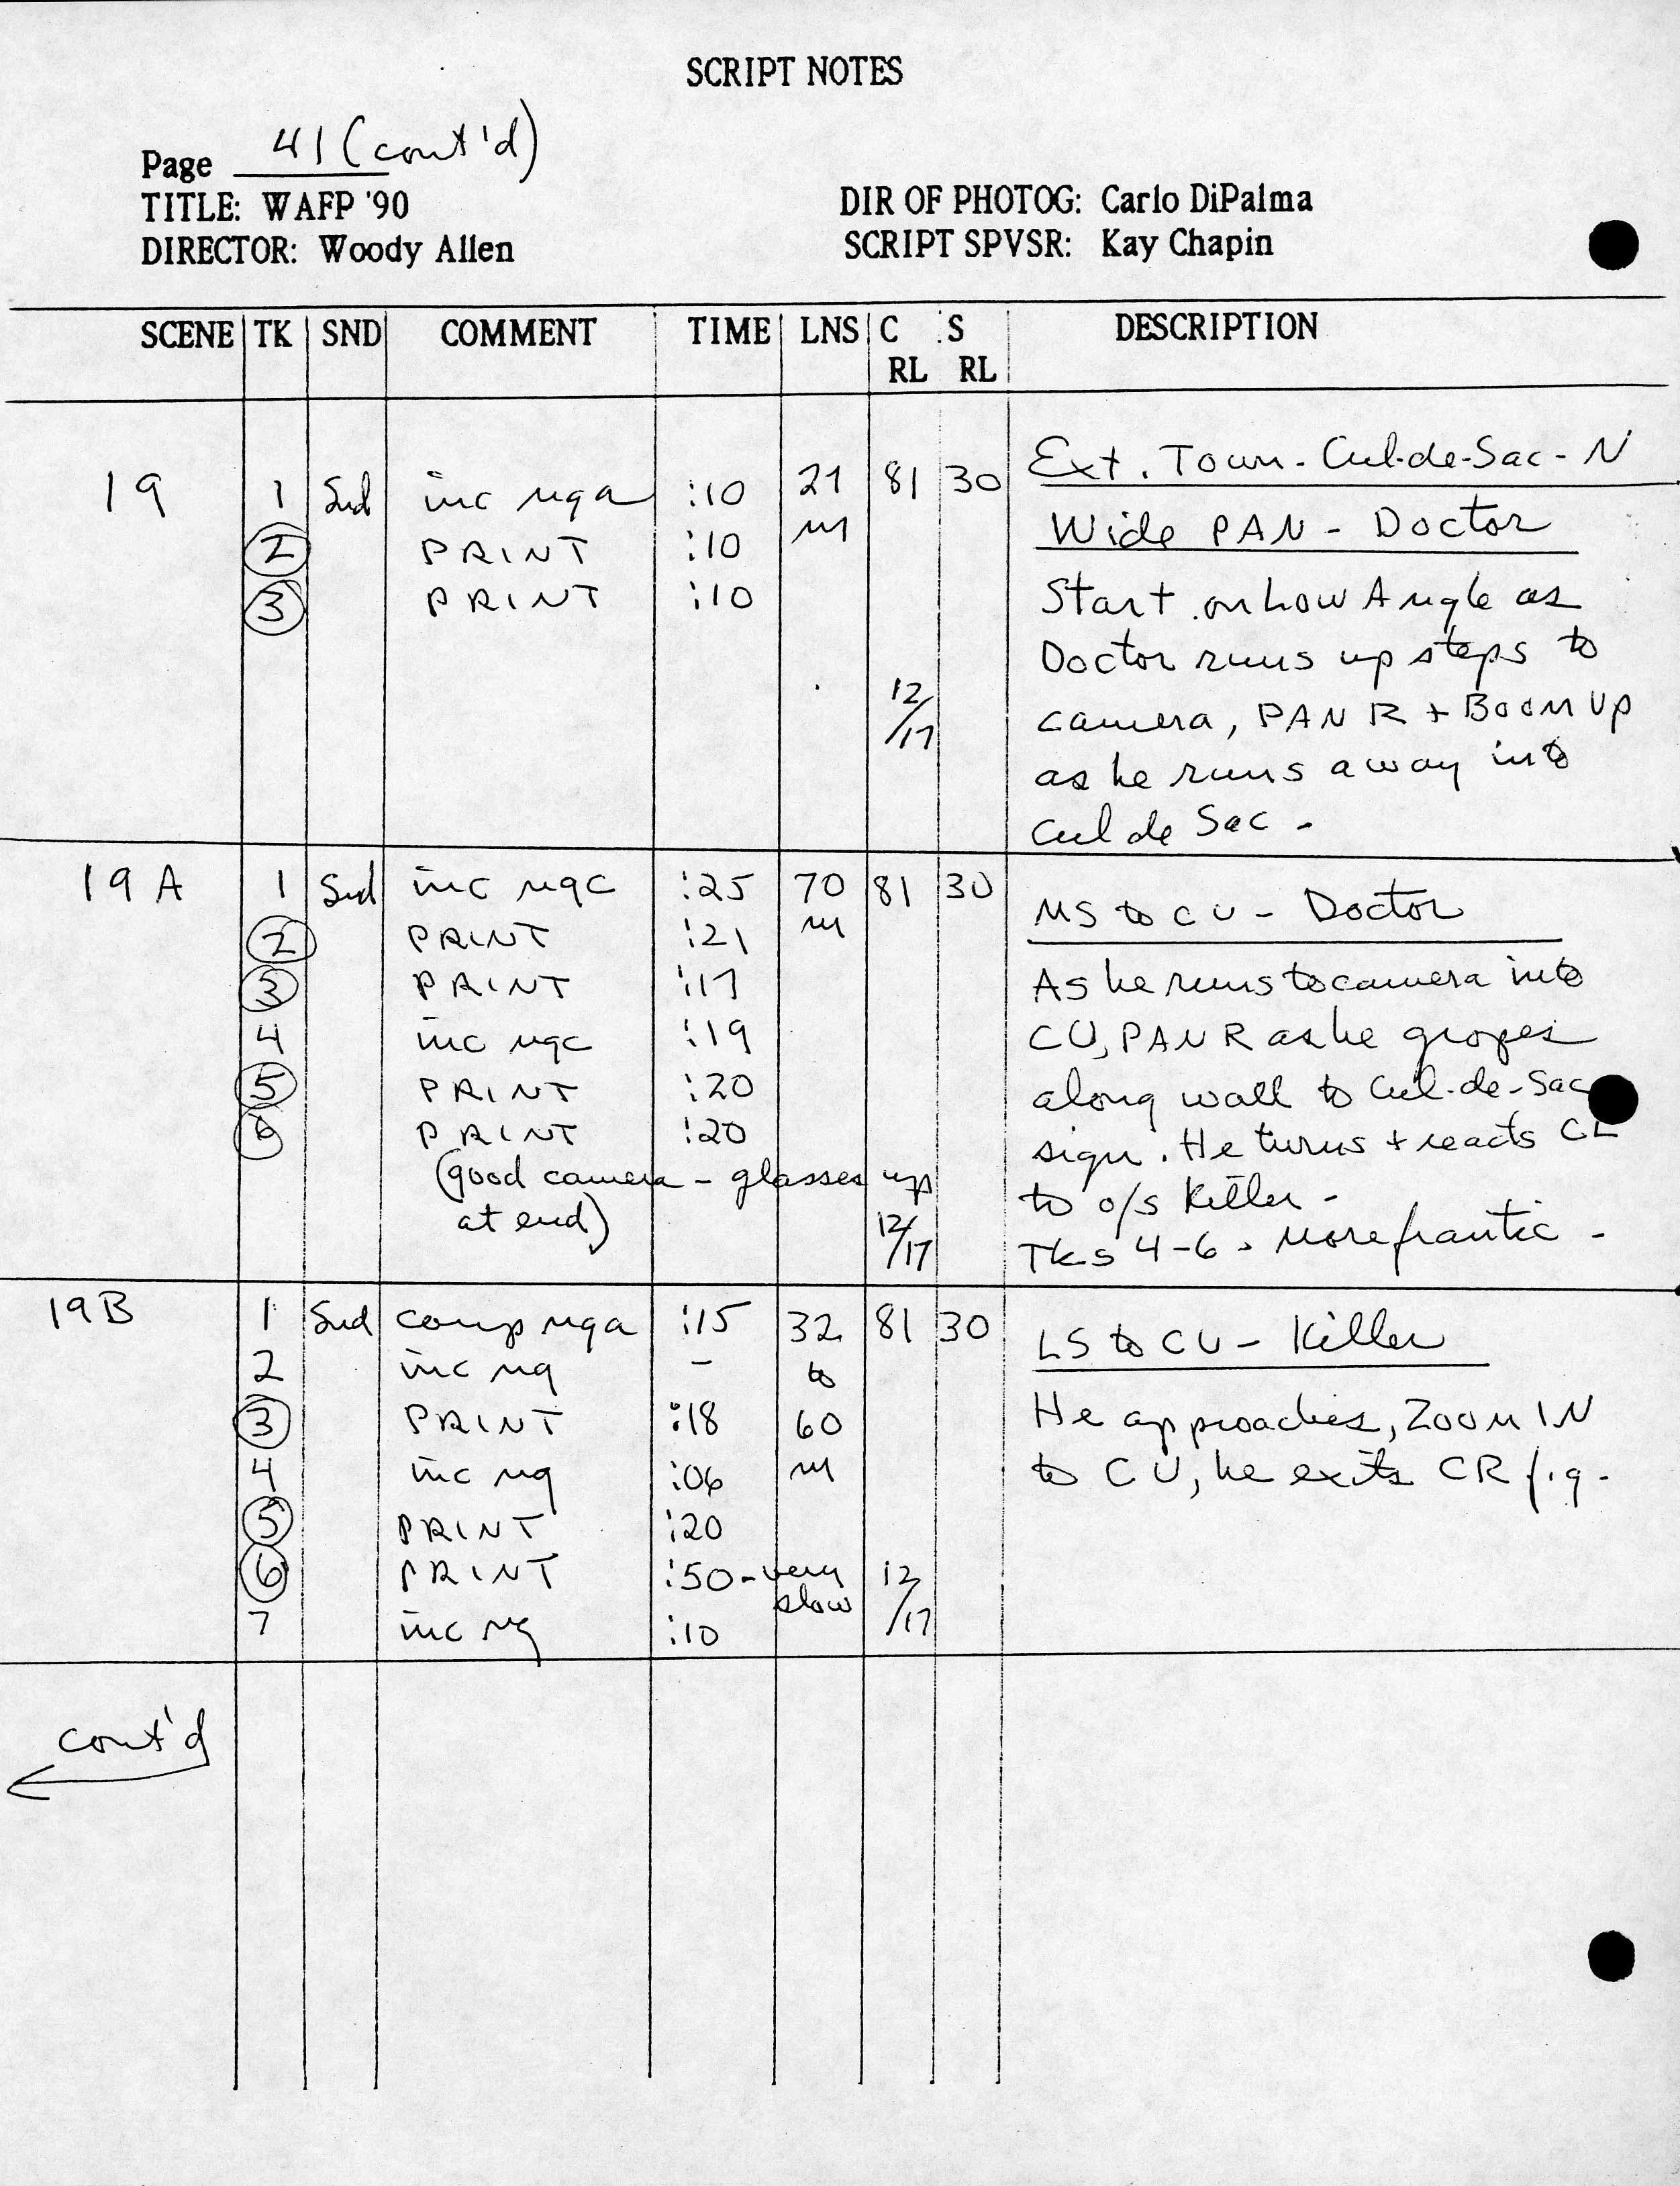 SCRIPT NOTES
Page 41 (cont'd)
TITLE: WAFP '90
DIRECTOR: Woody Allen
DIR OF PHOTOG: Carlo DiPalma
SCRIPT SPVSR: Kay Chapin
SCENE TK SND COMMENT TIME LNS C RL S RL DESCRIPTION
19 1 Snd inc nga :10 21 m 81 30
2 PRINT :10
3 PRINT :10
12/17
Ext. Town - Cul-de-Sac - N
Wide PAN - Doctor
Start on Low Angle as
Doctor runs up steps to
camera, PAN R + BOOM UP
as he runs away into
Cul de Sac -
19A 1 Snd inc ngc :25 70 m 81 30
2 PRINT :21
3 PRINT :17
4 inc ngc :19
5 PRINT :20
6 PRINT :20
(good camera - glasses up
at end)
12/17
MS to CU - Doctor
As he runs to camera into
CU, PAN R as he gropes
along wall to Cul-de-Sac
sign. He turns + reacts CL
to o/s Killer -
TKs 4-6 - More frantic -
19B 1 Snd comp nga :15 32 81 30
2 inc ng - to
3 PRINT :18 60
4 inc ng :06 m
5 PRINT :20
6 PRINT :50 - very slow
7 inc ng :10
12/17
LS to CU - Killer
He approaches, ZOOM IN
to CU, he exits CR f.g.
cont'd